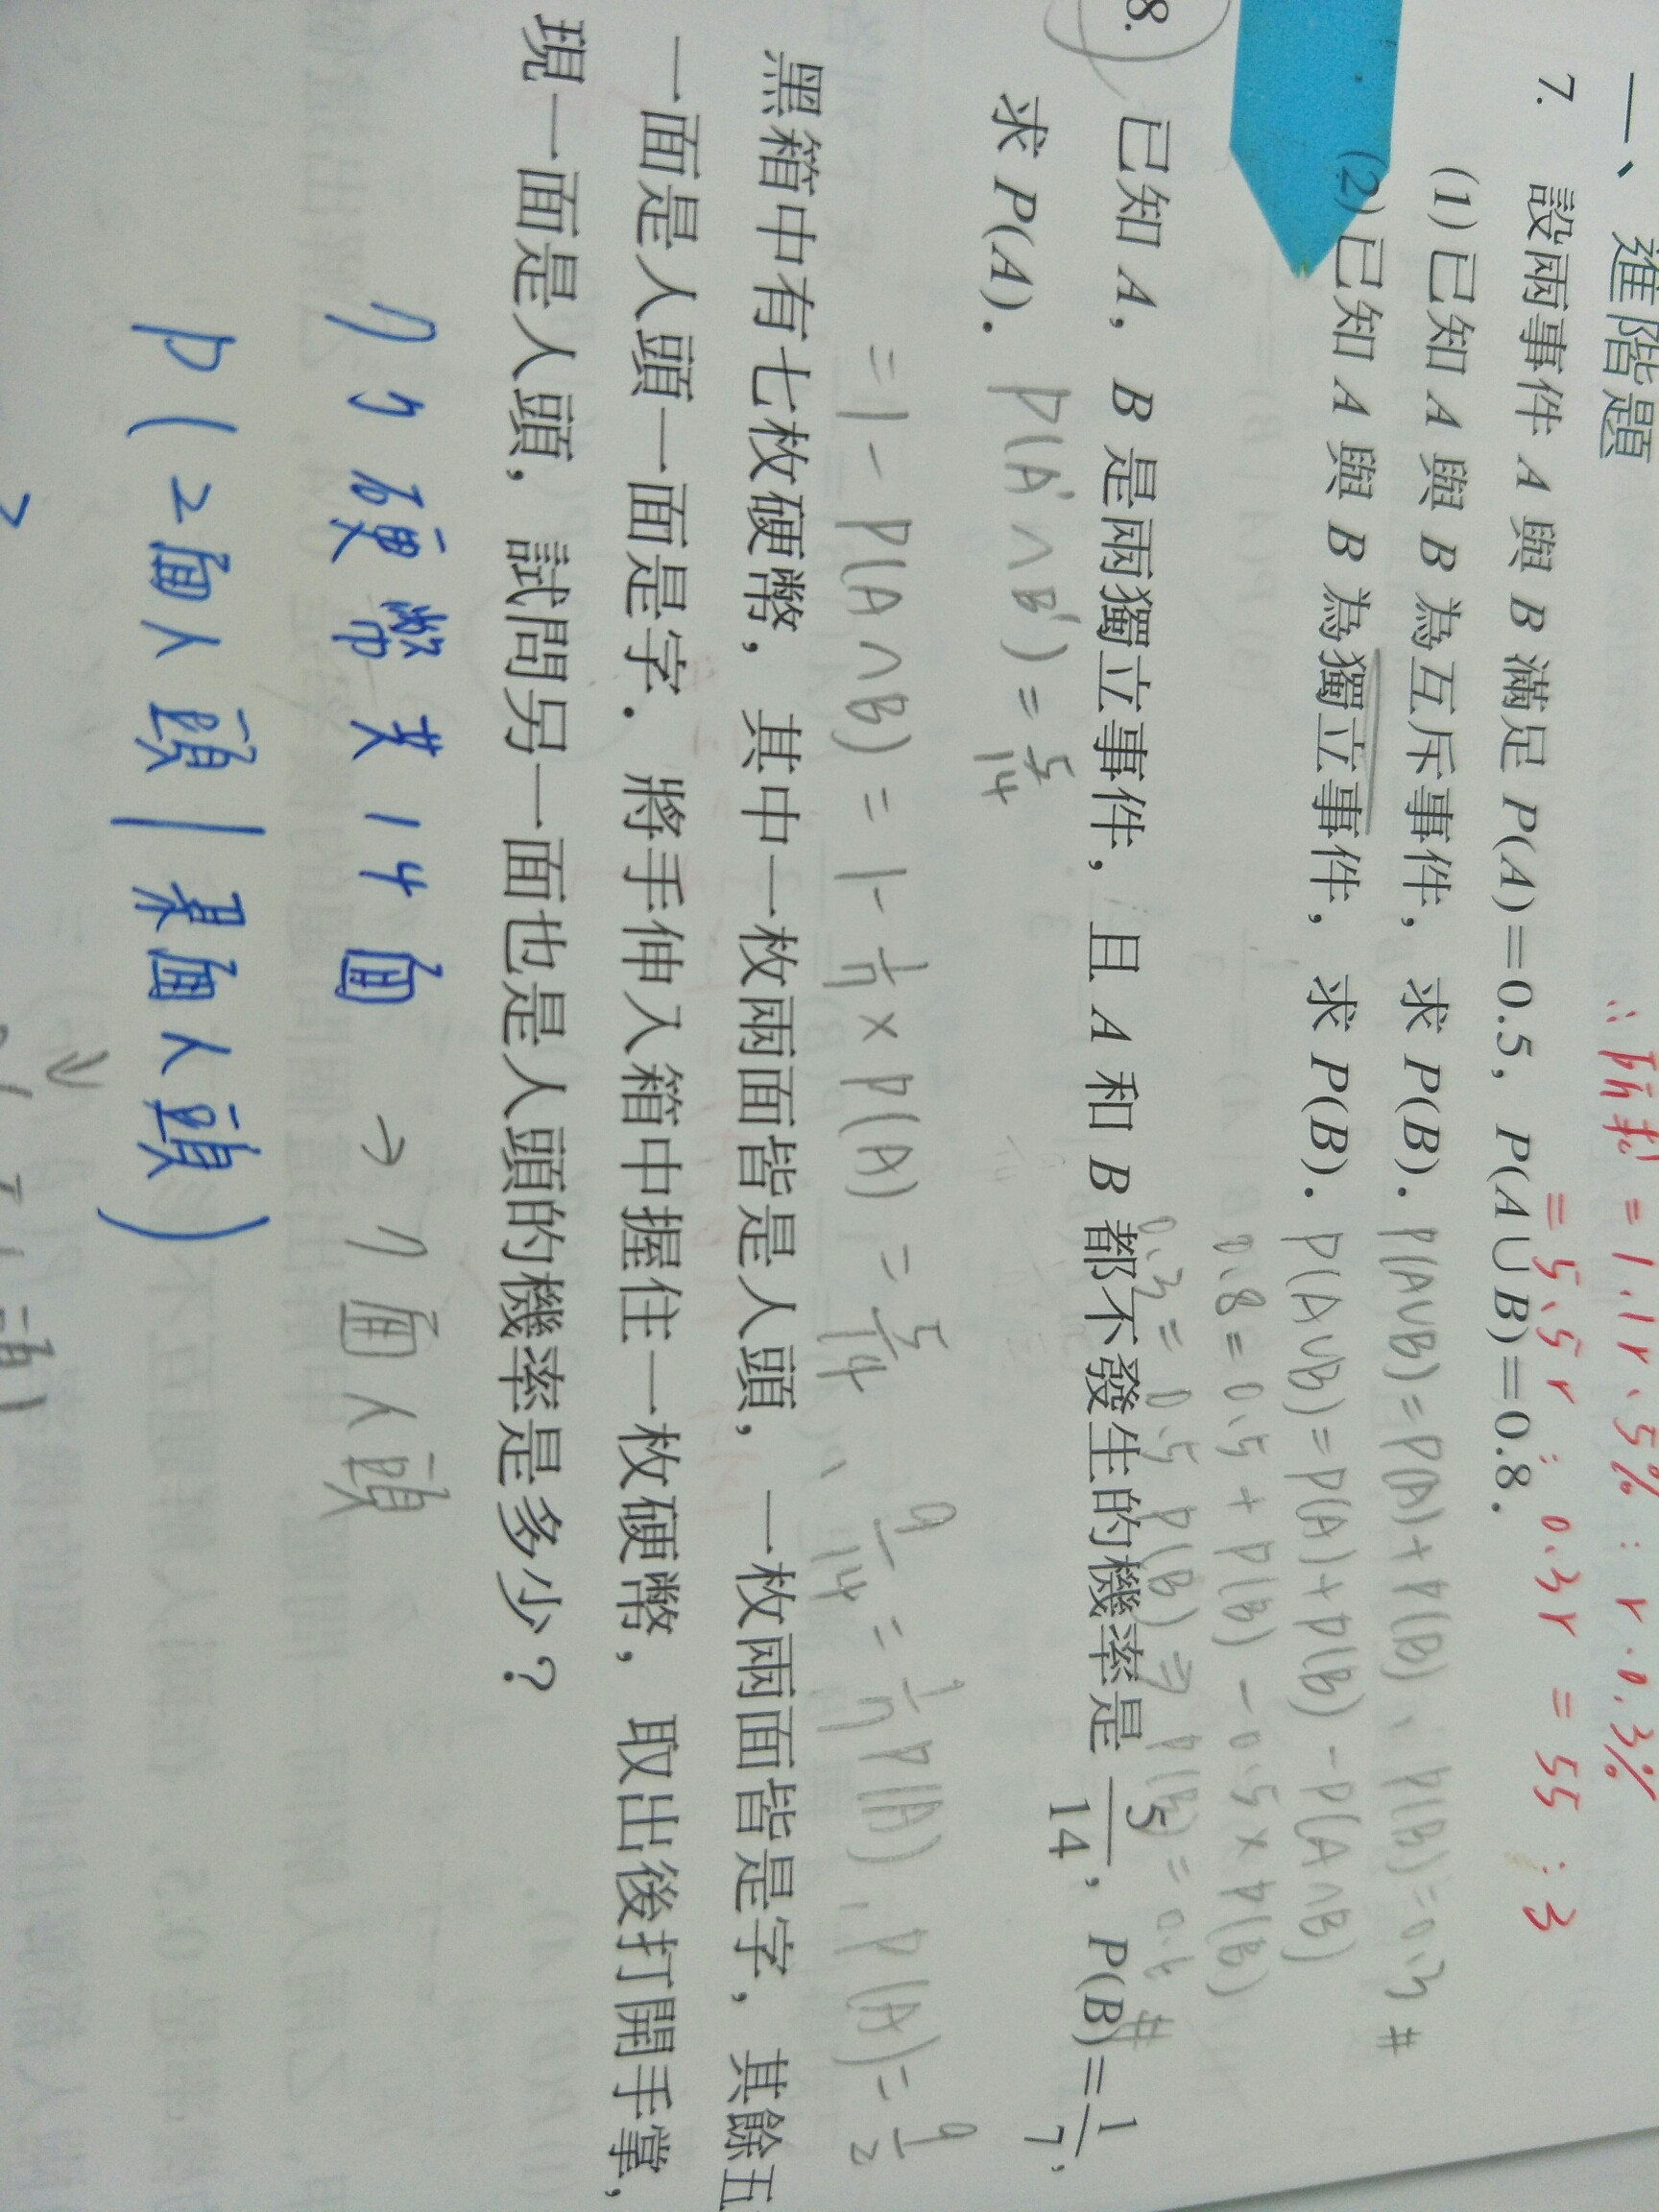 一、進階題
∴ 所求 = 1.1r.5% : r.0.3%
= 5.5r : 0.3r = 55 : 3
7. 設兩事件 A 與 B 滿足 P(A)=0.5, P(A∪B)=0.8.
(1)已知 A 與 B 為互斥事件, 求 P(B). P(A∪B)=P(A)+P(B)、P(B)=0.3 #
(2)已知 A 與 B 為獨立事件, 求 P(B). P(A∪B)=P(A)+P(B)-P(A∩B)
0.8=0.5+P(B)-0.5×P(B)
0.3=0.5 P(B) ⇒ P(B)=0.6 #
8. 已知 A, B 是兩獨立事件, 且 A 和 B 都不發生的機率是 5/14, P(B)=1/7,
求 P(A). P(A'∩B')=5/14
=1-P(A∩B)=1-1/7×P(A)=5/14、9/14=1/7P(A), P(A)=9/2
黑箱中有七枚硬幣, 其中一枚兩面皆是人頭, 一枚兩面皆是字, 其餘五
一面是人頭一面是字. 將手伸入箱中握住一枚硬幣, 取出後打開手掌,
現一面是人頭, 試問另一面也是人頭的機率是多少?
7個硬幣共14面 → 7面人頭
P(2面人頭|某面人頭)